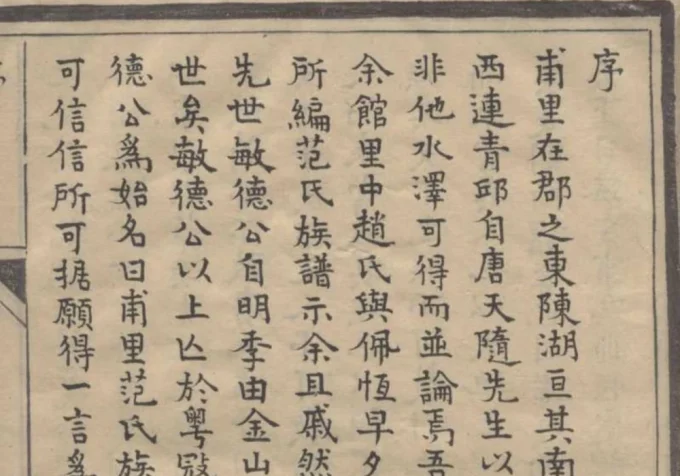 序
甫里在郡之東陳湖亘其南
西連青邱自唐天隨先生以
非他水澤可得而並論焉吾
余館里中趙氏與佩恆早夕
所編范氏族譜示余且戚然
先世敏德公自明季由金山
世矣敏德公以上亾於粵
德公爲始名曰甫里范氏族
可信信所可据願得一言爲